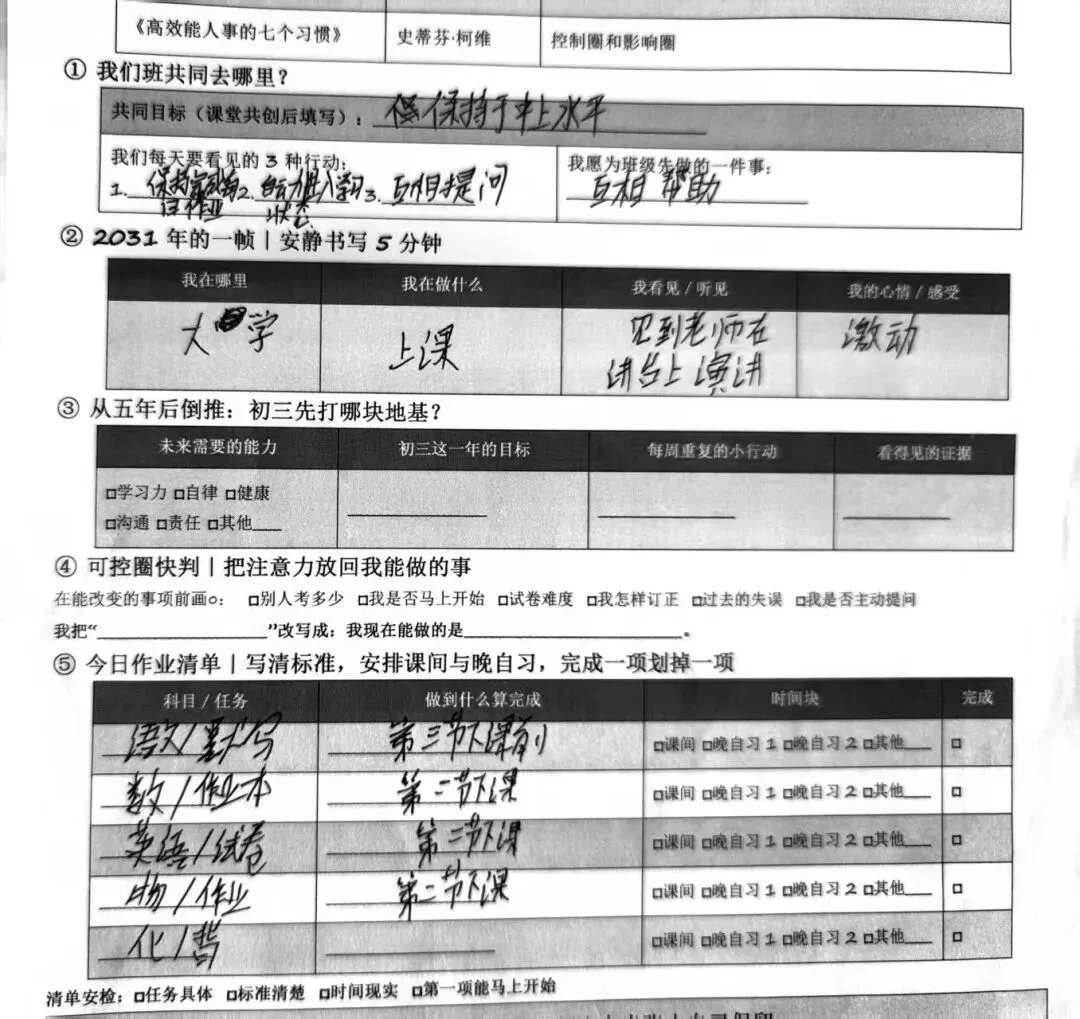 《高效能人事的七个习惯》 史蒂芬·柯维 控制圈和影响圈
① 我们班共同去哪里？
共同目标（课堂共创后填写）： 保持于中上水平
我们每天要看见的 3 种行动： 我愿为班级先做的一件事：
1. 保持完成每 2. 自动进入学习 3. 互相提问 互相帮助
日作业 状态
② 2031 年的一帧 | 安静书写 5 分钟
我在哪里 我在做什么 我看见 / 听见 我的心情 / 感受
大学 上课 见到老师在 激动
讲台上演讲
③ 从五年后倒推：初三先打哪块地基？
未来需要的能力 初三这一年的目标 每周重复的小行动 看得见的证据
□学习力 □自律 □健康
□沟通 □责任 □其他___
④ 可控圈快判 | 把注意力放回我能做的事
在能改变的事项前画○： □别人考多少 □我是否马上开始 □试卷难度 □我怎样订正 □过去的失误 □我是否主动提问
我把“___”改写成：我现在能做的是___。
⑤ 今日作业清单 | 写清标准，安排课间与晚自习，完成一项划掉一项
科目 / 任务 做到什么算完成 时间块 完成
语文/默写 第三节下课前 □课间 □晚自习 1 □晚自习 2 □其他___ □
数/作业本 第二节下课 □课间 □晚自习 1 □晚自习 2 □其他___ □
英语/试卷 第三节下课 □课间 □晚自习 1 □晚自习 2 □其他___ □
物/作业 第二节下课 □课间 □晚自习 1 □晚自习 2 □其他___ □
化/背 □课间 □晚自习 1 □晚自习 2 □其他___ □
清单安检：□任务具体 □标准清楚 □时间现实 □第一项能马上开始